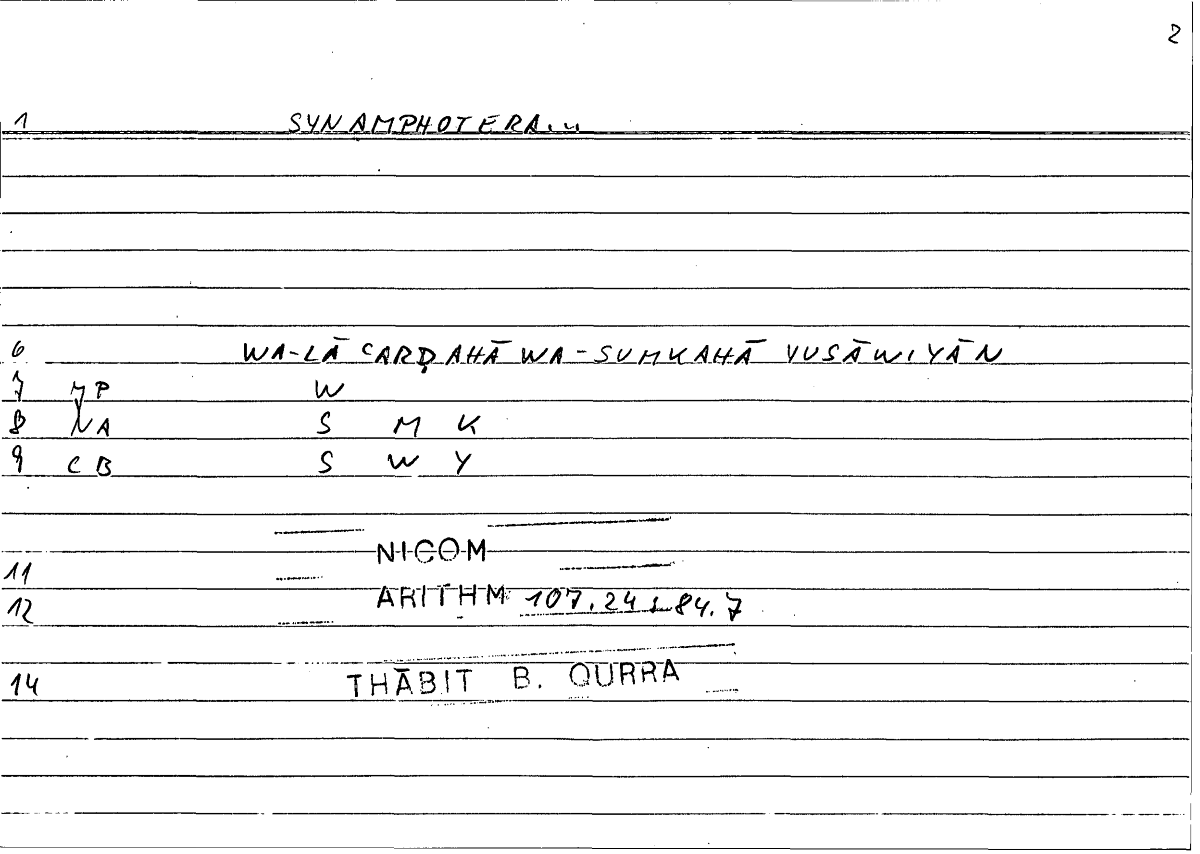 2
1 SYNAMPHOTERA.
6 WA-LĀ ʿARḌAHĀ WA-SUMKAHĀ YUSĀWIYĀN
7 MP W
8 NA S M K
9 CB S W Y
NICOM
11
ARITHM 107.24 84.7
12
14 THĀBIT B. QURRA